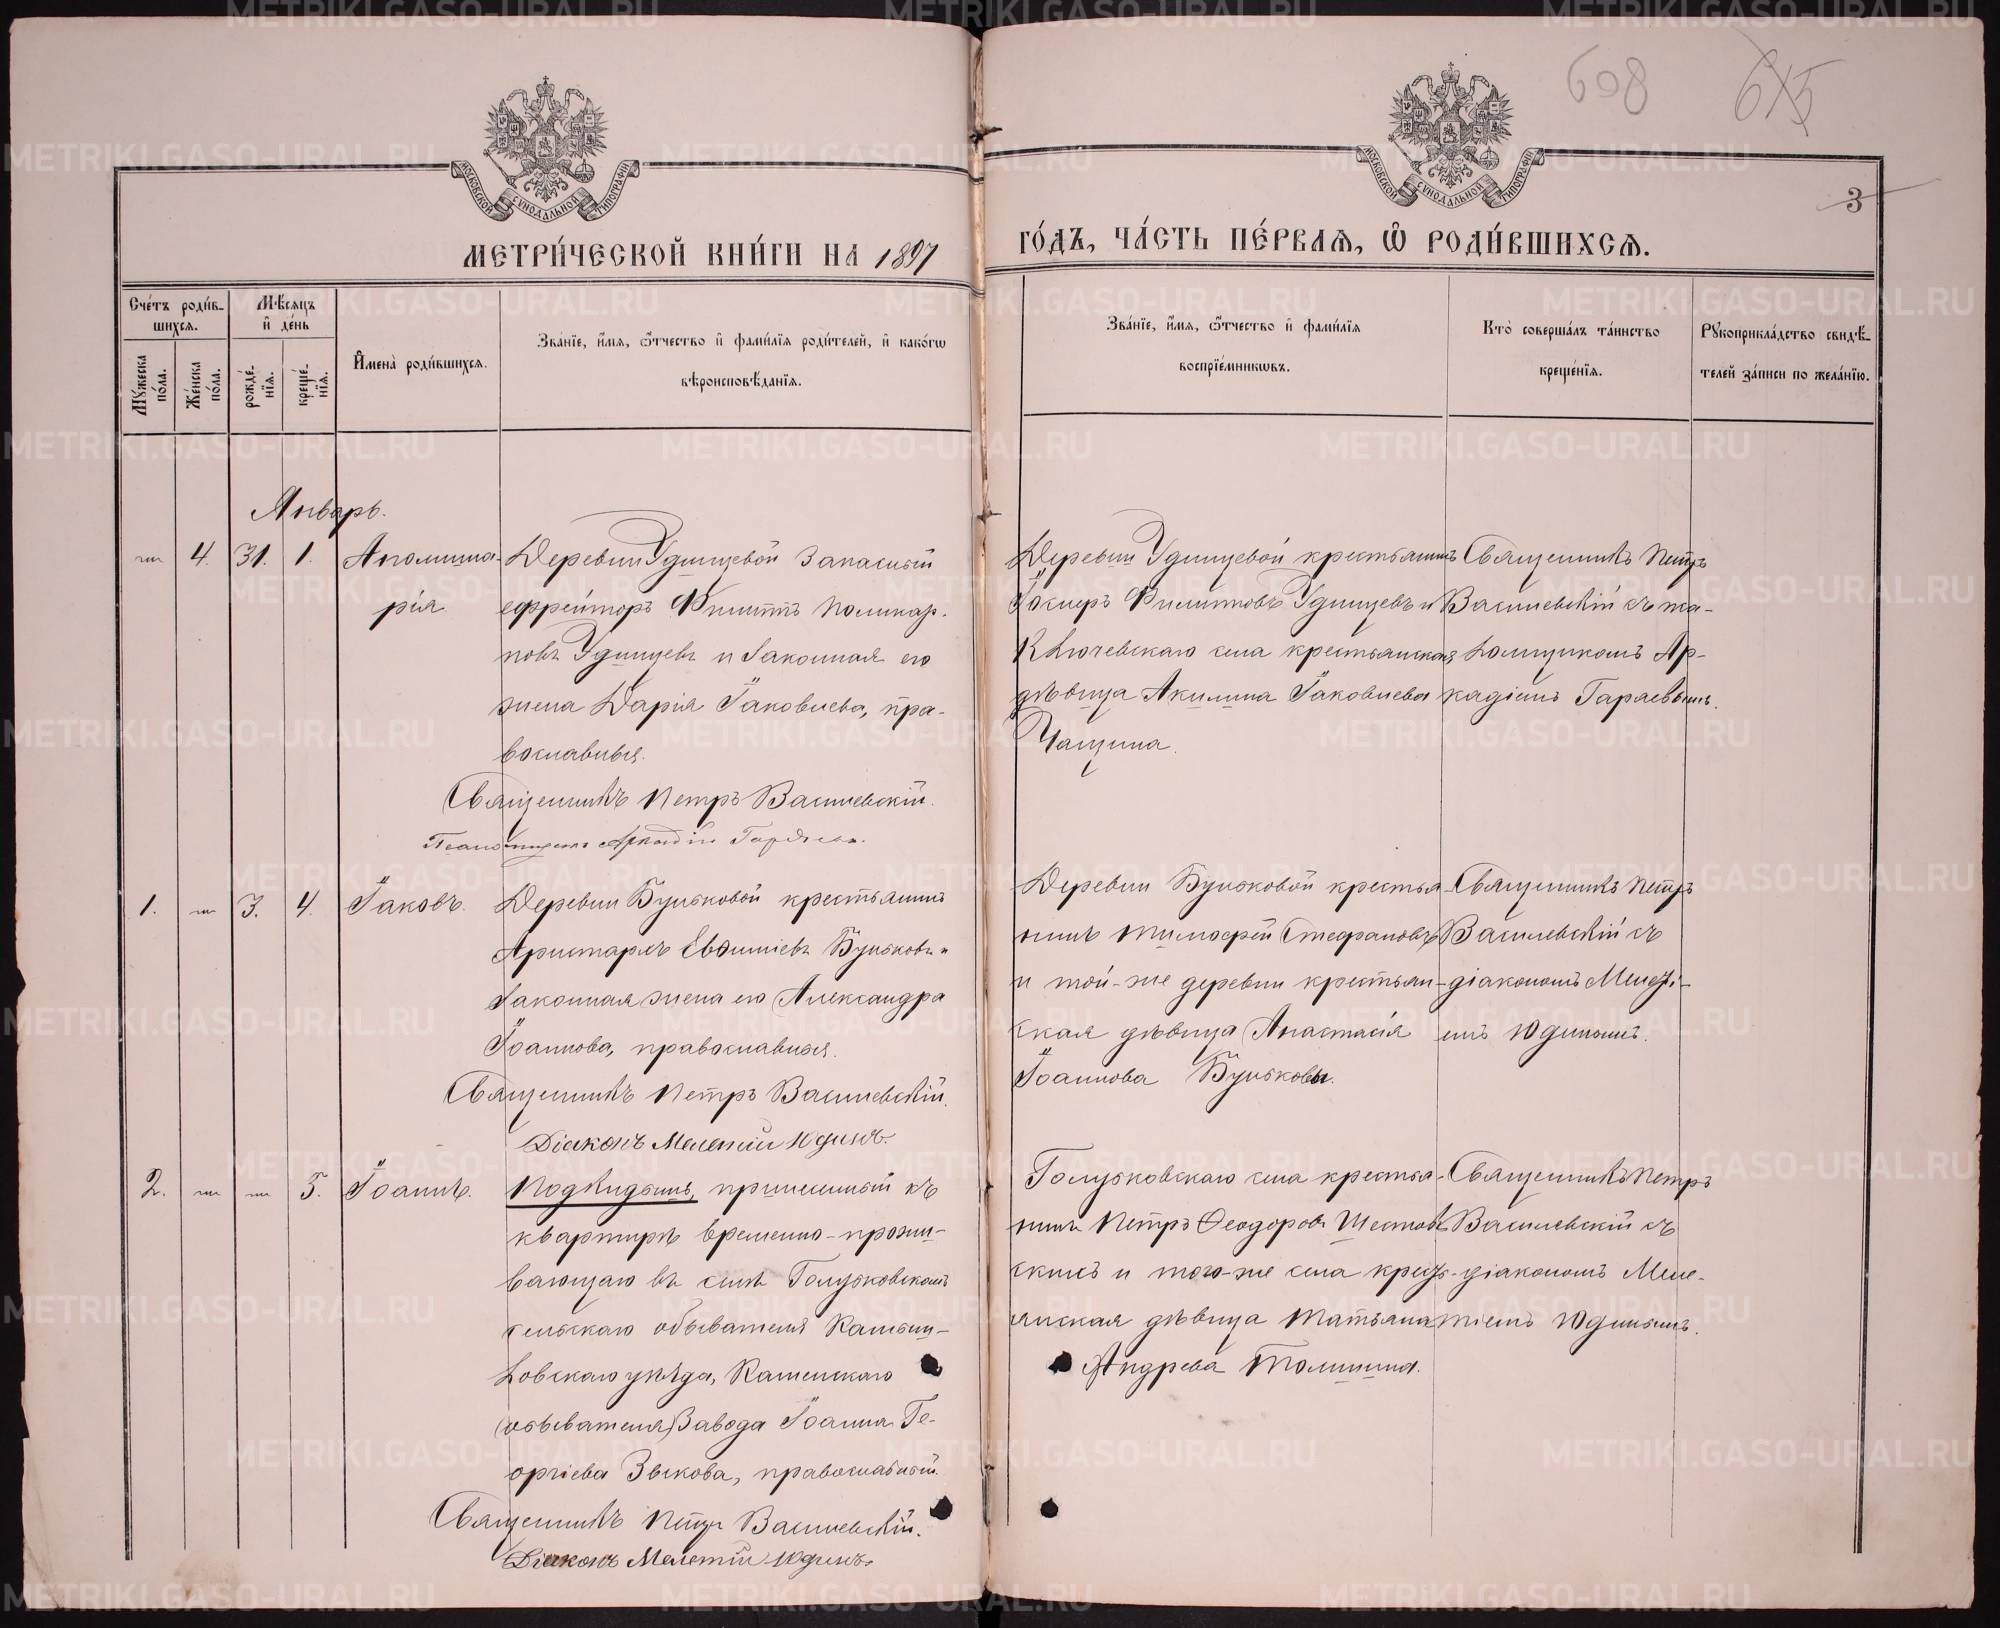 608
3
МОСКОВСКОЙ СѴНОДАЛЬНОЙ ТИПОГРАФІИ
МОСКОВСКОЙ СѴНОДАЛЬНОЙ ТИПОГРАФІИ
МЕТРИ́ЧЕСКОЙ КНИ́ГИ НА 1897
ГО́ДЪ, ЧА́СТЬ ПЕ́РВАѦ, Ѡ РОДИ́ВШИХСѦ.
Сче́тъ роди́в-
шихсѧ.
Мѣ́сѧцъ
и҆ де́нь
Мꙋ́жеска по́ла.
Же́нска по́ла.
рожде́нїѧ.
креще́нїѧ.
И҆мена̀ роди́вшихсѧ.
Зва́нїе, и҆́мѧ, ѻ҆́тчество и҆ фами́лїѧ роди́телей, и҆ како́гѡ
вѣроисповѣ́данїѧ.
Зва́нїе, и҆́мѧ, ѻ҆́тчество и҆ фами́лїѧ
воспрїе́мникѡвъ.
Кто̀ соверша́лъ та́инство
креще́нїѧ.
Рꙋкоприкла́дство свидѣ́-
телей за́писи по жела́нїю.
Январь.
4. 31. 1. Аполина-
рія.
Деревни Удинцевой запасный
ефрейторъ Филиппъ Поликар-
повъ Удинцевъ и законная его
жена Дарія Іаковлева, пра-
вославныя.
Священникъ Петръ Василевскій.
Псаломщикъ Аркадій Гаряевъ.
Деревни Удинцевой крестьянинъ
Филипповъ Удинцевъ и
Ключевскаго села крестьянская
дѣвица Акилина Іаковлева
Чащина.
Священникъ Петръ
Василевскій съ пса-
ломщикомъ Ар-
кадіемъ Гаряевымъ.
1. 3. 4. Іаковъ.
Деревни Буньковой крестьянинъ
Аристархъ Евѳиміевъ Буньковъ и
законная жена его Александра
Іоаннова, православныя.
Священникъ Петръ Василевскій.
Діаконъ Мелетій Юдинъ.
Деревни Буньковой крестья-
нинъ Тимофей Стефановъ
и той-же деревни крестьян-
ская дѣвица Анастасія
Іоаннова Буньковы.
Священникъ Петръ
Василевскій съ
діакономъ Мелеті-
емъ Юдинымъ.
2. 5. Іоаннъ.
Подкидышъ, принесенный къ
квартирѣ временно-прожи-
вающаго въ селѣ Голубковскомъ
сельскаго обывателя Камыш-
ловскаго уѣзда, Каменскаго
(обывателя) Завода Іоанна Ге-
оргіева Зыкова, православный.
Священникъ Петръ Василевскій.
Діаконъ Мелетій Юдинъ.
Голубковскаго села крестья-
нинъ Петръ Ѳеодоровъ Шестов-
скихъ и того-же села кресть-
янская дѣвица Татьяна
Андреева Толшина.
Священникъ Петръ
Василевскій съ
діакономъ Меле-
тіемъ Юдинымъ.
METRIKI.GASO-URAL.RU